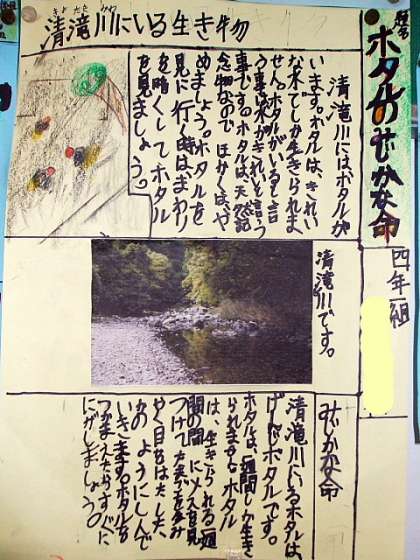 題名
ホタルのみじかな命
四年一組
清滝川にいる生き物
清滝川にはホタルが
います。ホタルは、きれい
な水でしか生きられま
せん。ホタルがいると言
う事は水がきれいと言う
事です。ホタルは、天然記
念物なので ほかくは、や
めましょう。ホタルを
見に行く時はまわり
を暗くしてホタル
を見ましょう。
清滝川です。
みじかな命
清滝川にいるホタルは、
げんじボタルです。
ホタルは一週間しか生き
られません。ホタル
は、生きられる一週
間の間に
つけてたまごをうみ
やく目をはたした
かのようにしんで
いきます。ホタルを
つかまえたらすぐに
にがしましょう。